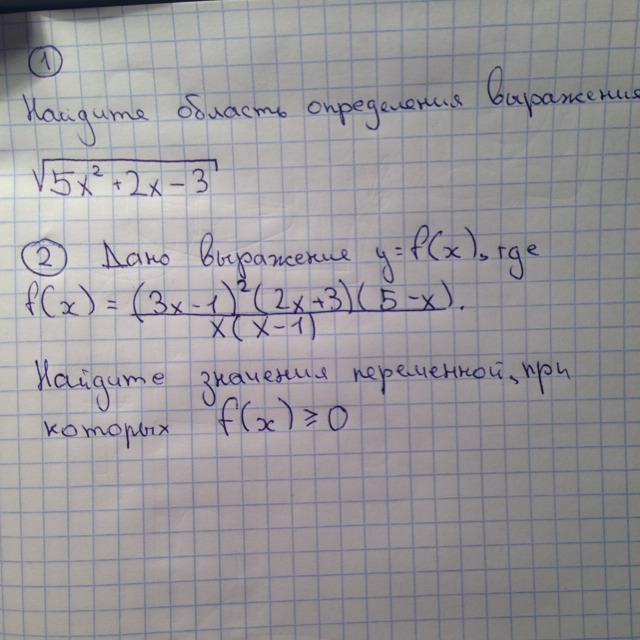 ①
Найдите область определения выражения
√5x²+2x-3
② Дано выражение y=f(x), где
f(x) = (3x-1)²(2x+3)(5-x).
x(x-1)
Найдите значения переменной, при
которых f(x)≥0